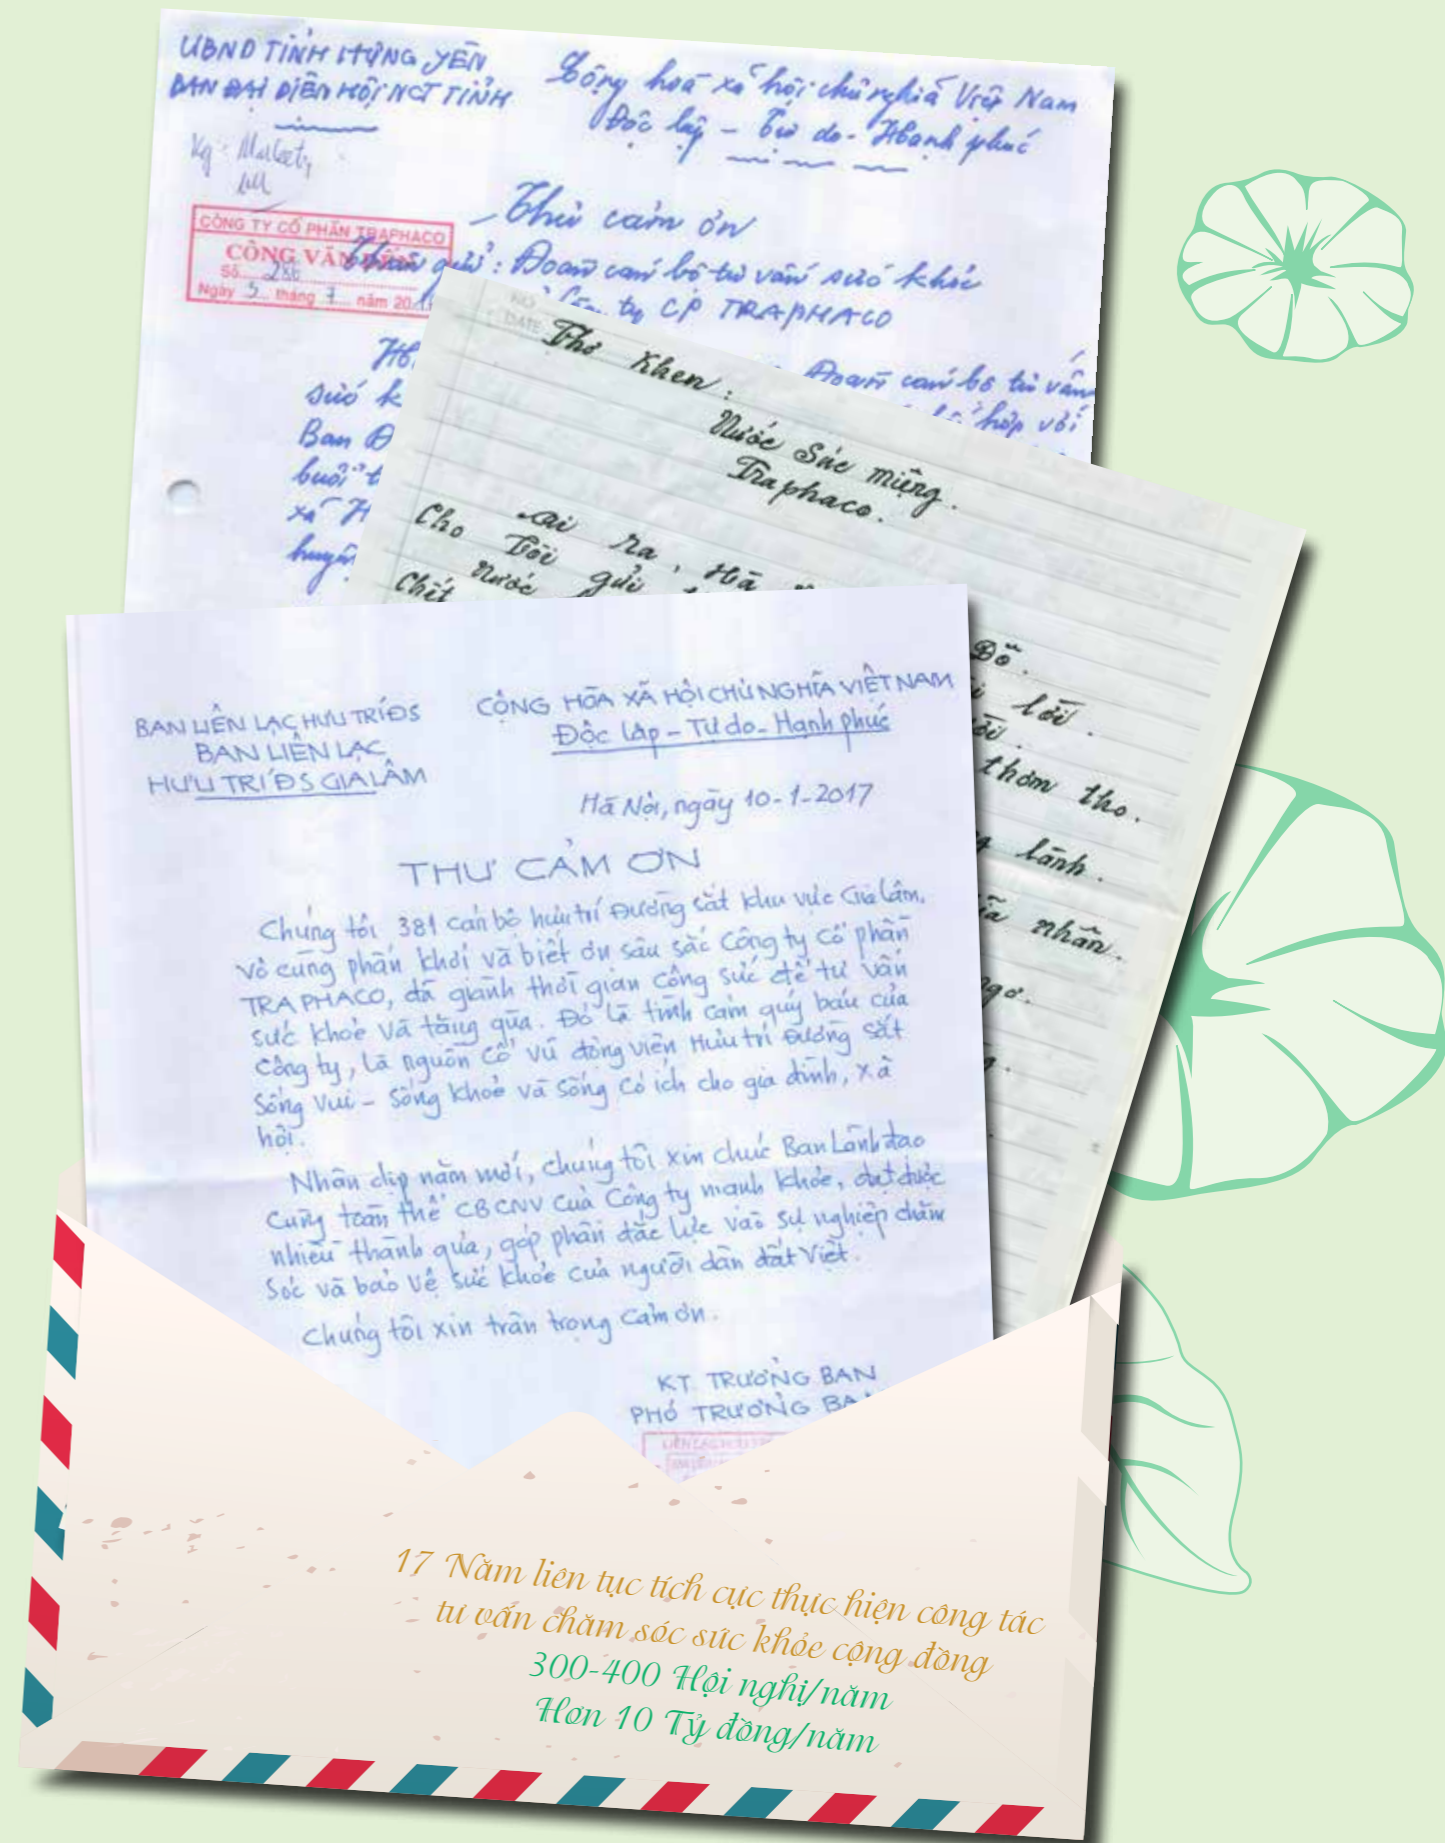 UBND TỈNH HƯNG YÊN
BAN ĐẠI DIỆN HỘI NCT TỈNH
Cộng hoà xã hội chủ nghĩa Việt Nam
Độc lập - Tự do - Hạnh phúc
Kg: Marketing
CÔNG TY CỔ PHẦN TRAPHACO
CÔNG VĂN ĐẾN
Số 286
Ngày 5 tháng 7 năm 20
Thư cảm ơn
gửi: Đoàn cán bộ tư vấn sức khỏe
ty CP TRAPHACO
Đoàn cán bộ tư vấn
sức k
hợp với
Ban Đ
buổi t
xã H
huyện
NO
DATE
Thơ Khen:
Nước Súc miệng.
Traphaco.
ai ra, Hà
Cho Tôi gửi
Chút Nước
Đô.
lời.
thơm tho.
lành.
nhân.
BAN LIÊN LẠC HƯU TRÍ ĐS
BAN LIÊN LẠC
HƯU TRÍ ĐS GIA LÂM
CỘNG HÒA XÃ HỘI CHỦ NGHĨA VIỆT NAM
Độc lập - Tự do - Hạnh phúc
Hà Nội, ngày 10-1-2017
THƯ CẢM ƠN
Chúng tôi 381 cán bộ hưu trí Đường sắt khu vực Gia Lâm.
vô cùng phấn khởi và biết ơn sâu sắc Công ty Cổ phần
TRAPHACO, đã giành thời gian công sức để tư vấn
sức khoẻ và tặng qùa. Đó là tình cảm quý báu của
Công ty, là nguồn cổ vũ động viên Hưu trí Đường sắt
Sống vui - sống khoẻ và sống có ích cho gia đình, xã
hội.
Nhân dịp năm mới, chúng tôi xin chúc Ban Lãnh đạo
cùng toàn thể CBCNV của Công ty mạnh khỏe, đạt được
nhiều thành qủa, góp phần đắc lực vào sự nghiệp chăm
sóc và bảo vệ sức khoẻ của người dân đất Việt.
Chúng tôi xin trân trọng cảm ơn.
KT TRƯỞNG BAN
PHÓ TRƯỞNG BA
17 Năm liên tục tích cực thực hiện công tác
tư vấn chăm sóc sức khỏe cộng đồng
300-400 Hội nghị/năm
Hơn 10 Tỷ đồng/năm